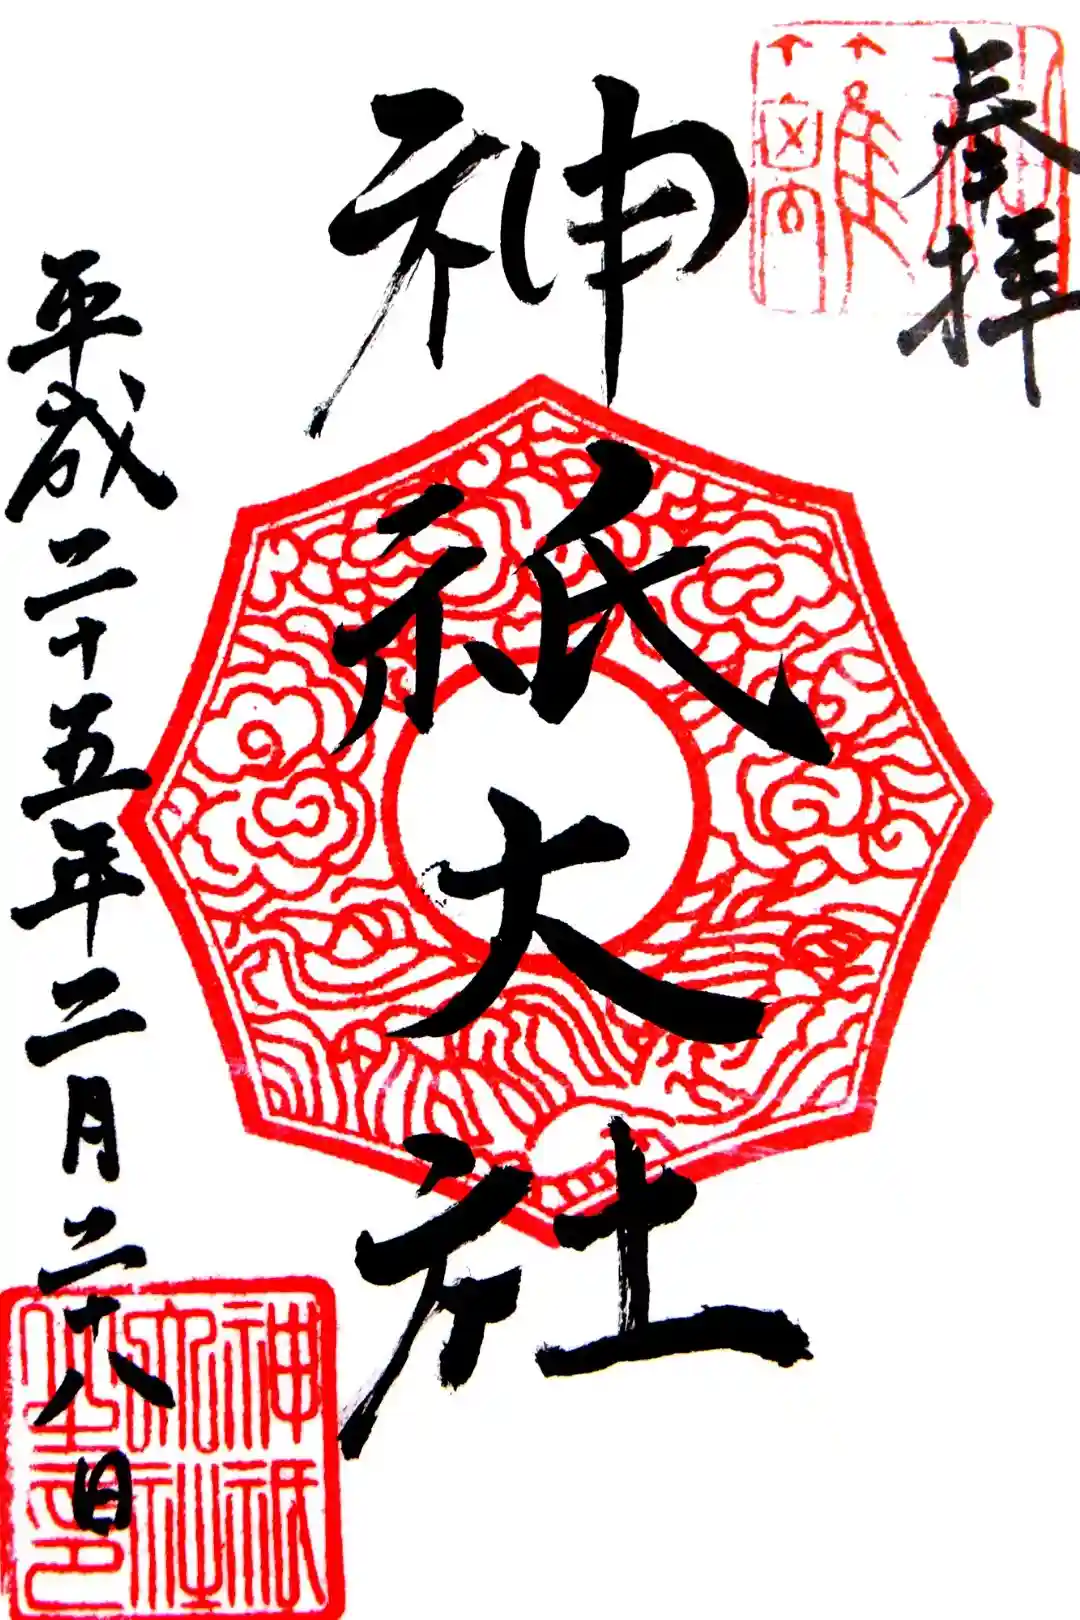 奉拝
神祇大社
平成二十五年二月二十八日
神祇